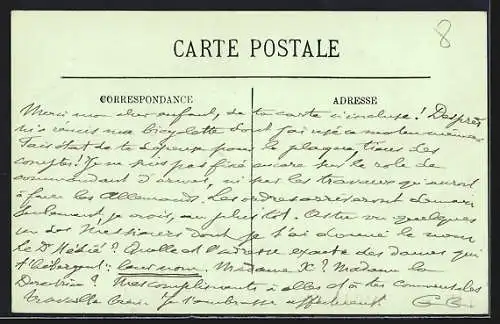 8
CARTE POSTALE
CORRESPONDANCE
ADRESSE
Merci mon cher enfant, de ta carte si incluse! Des prés
reçois ma bicyclette dont j'ai usé
l'état de te dépense pour la plaque
comptes! Je ne suis pas fixé encore sur le rôle de
commandant d'armes, ni par les travaux qui auront
à faire les Allemands. Les ordres arriveront demain
seulement, je crois, au plus tôt. As-tu vu quelques
un des Messieurs dont je t'ai donné le nom
le Dr Quelle est l'adresse exacte des dames qui
t'hébergent: leur nom Madame X? Madame la
Directrice? Mes compliments à elles et à tes commensales
Travaille bien! Je t'embrasse affectueusement